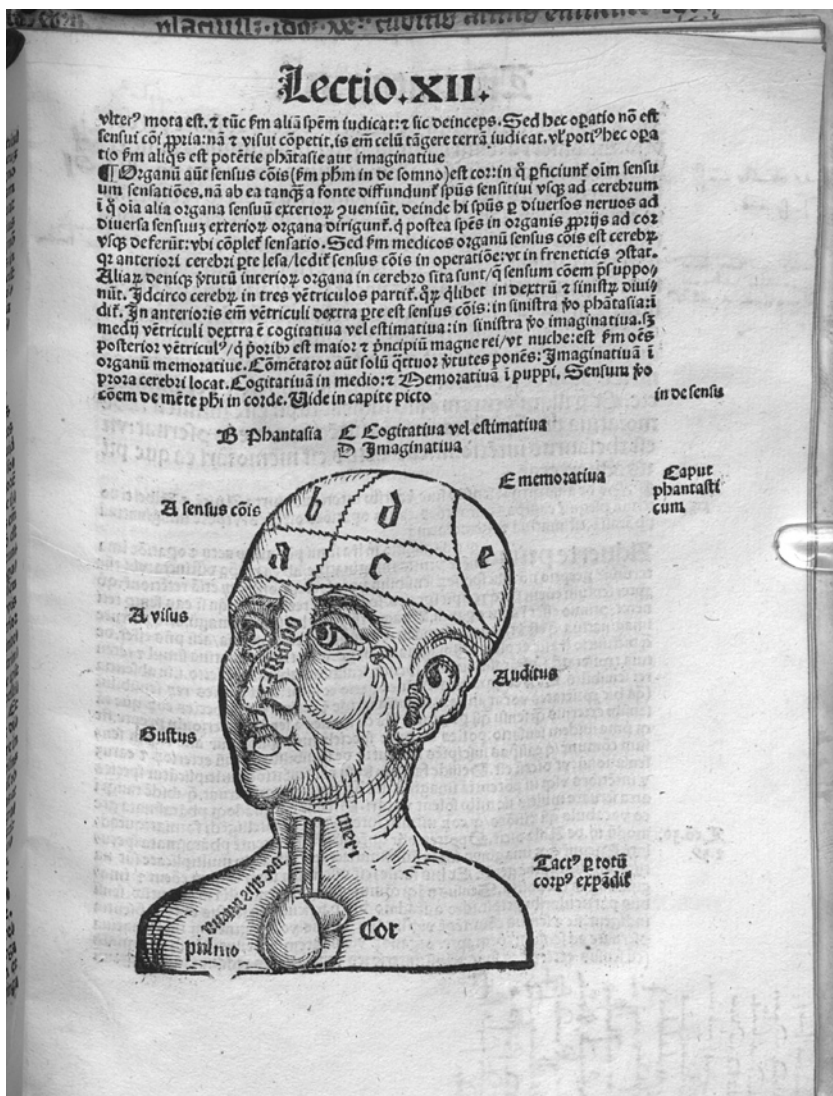 Lectio.XII.
vlterꝰ mota est. ⁊ tūc ẜm aliā spēm iudicat: ⁊ sic deinceps. Sed hec oꝑatio nō est
sensui cōi ꝓpria: nā ⁊ visui cōpetit, is em̄ celū tāgere terrā iudicat. vl̓ potiꝰ hec oꝑa
tio ẜm aliq̄s est potētie phātasie aut imaginatiue
¶ Organū aūt sensus cōis (ẜm ph̄m in de somno) est cor: in q̄ ꝑficiunt̄ oīm sensu
um sensatiōes. nā ab ea tanq̄ a fonte diffundunt̄ sp̄us sensitiui vsq̄ ad cerebrum
ī q̄ oīa alia organa sensuū exterioꝝ ꝯueniūt. deinde hi sp̄us ꝑ diuersos neruos ad
diuersa sensuuꝫ exterioꝝ organa dirigunt̄. q̄ postea spēs in organis ꝓprijs ad cor
vsqꝫ deferūt: vbi cōplet̄ sensatio. Sed ẜm medicos organū sensus cōis est cerebꝝ
qr anteriori cerebri ꝑte lesa / ledit̄ sensus cōis in operatiōe: vt in freneticis ꝯstat.
Aliaꝝ deniqꝫ v̓tutū interioꝝ organa in cerebro sita sunt / q̄ sensum cōem p̄suppo⸗
nūt. Idcirco cerebꝝ in tres vētriculos partit̄. q̄ꝝ q̄libet in dextrū ⁊ sinistꝝ diui⸗
dit̄. In anterioris em̄ vētriculi dextra ꝑte est sensus cōis: in sinistra v̓o phātasia: ī
medij vētriculi dextra ē cogitatiua vel estimatiua: in sinistra v̓o imaginatiua. sꝫ
posterior vētriculꝰ / q̄ p̄oribꝰ est maior: ⁊ p̄ncipiū magne rei / vt nuche: est ẜm oēs
organū memoratiue. Cōmētator aūt solū q̄ttuor v̓tutes ponēs: Imaginatiuā ī
prora cerebri locat. Cogitatiuā in medio: ⁊ Memoratiuā ī puppi. Sensum v̓o
cōem de mēte phi in corde. Vide in capite picto
in de sensu
B Phantasia C Cogitatiua vel estimatiua
D Imaginatiua
E memoratiua
Caput
phantasti
cum
A sensus cōis
b d
a c e
A visus
Odorat
Auditus
Gustus
meri
vocalis arteria
Tactꝰ ꝑ totū
corpꝰ expādit̄
Cor
pulmo